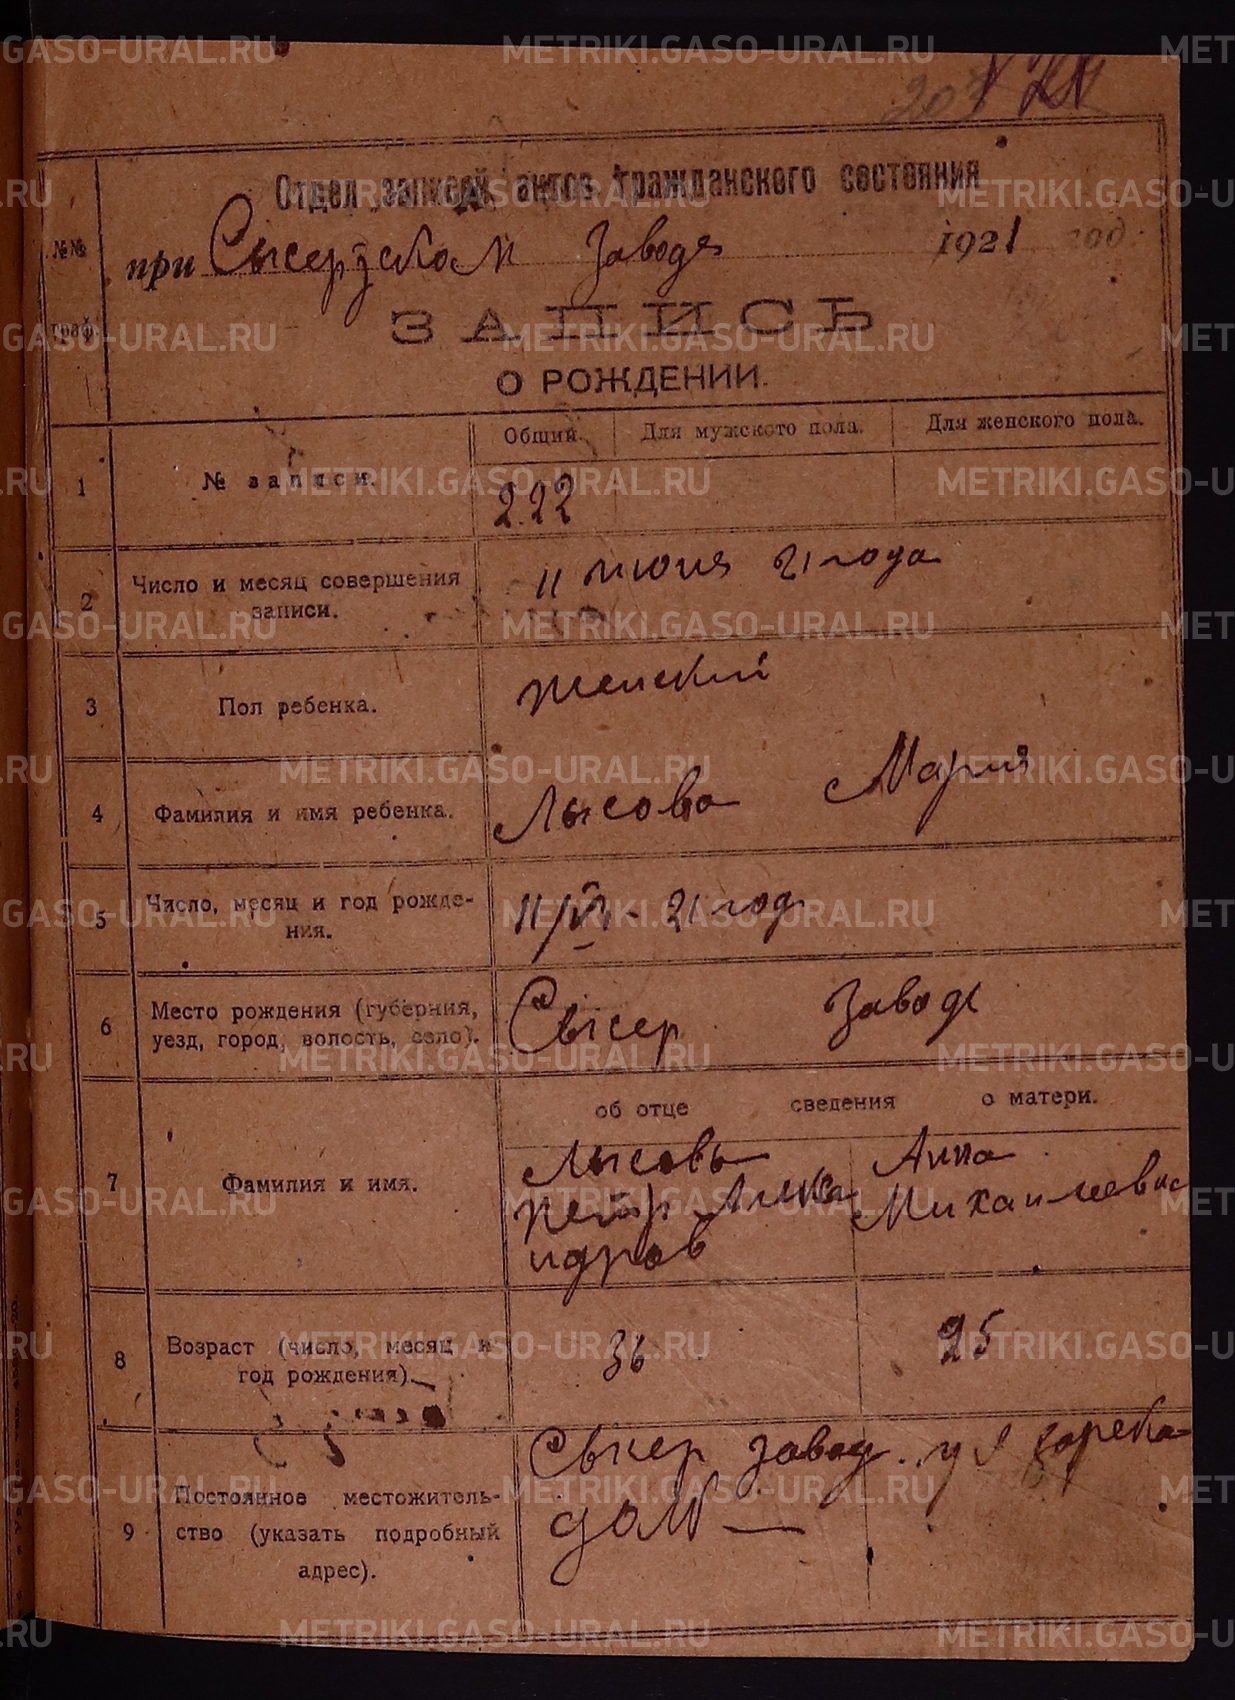 Отдел записей актов гражданского состояния
№№ граф.
при Сысертском заводе 1921 год.
ЗАПИСЬ
О РОЖДЕНИИ.
Общий. Для мужского пола. Для женского пола.
1 № записи. 222
2 Число и месяц совершения 11 июня 21 года
записи.
3 Пол ребенка. женский
4 Фамилия и имя ребенка. Лысова Мария
5 Число, месяц и год рожде- 11/VI - 21 год
ния.
6 Место рождения (губерния, Сысер заводе
уезд, город, волость, село).
об отце сведения о матери.
7 Фамилия и имя. Лысовы Анна
Петр Михаилевна
8 Возраст (число, месяц и 36 25
год рождения).
9 Постоянное местожитель- Сысер завод
ство (указать подробный дом
адрес).
METRIKI.GASO-URAL.RU